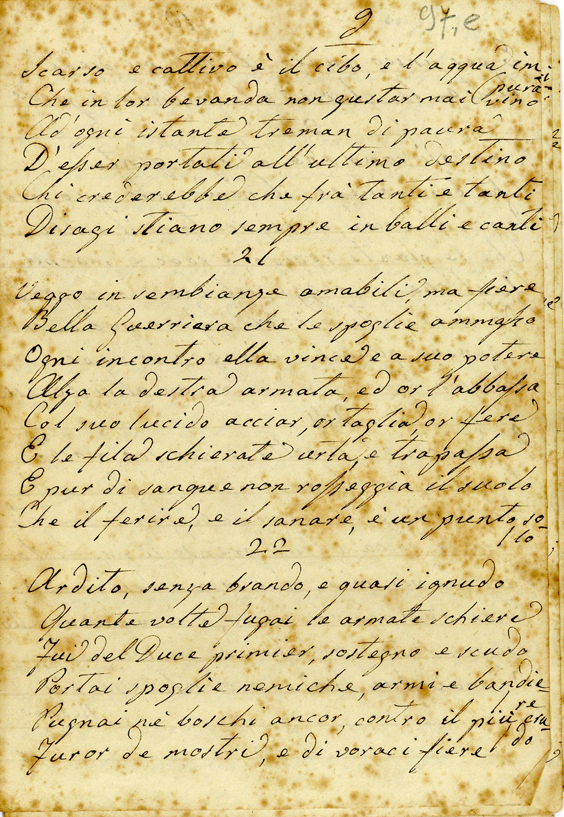 9 97,e
Scarso e cattivo è il cibo, e l'acqua im=
pura
Che in lor bevanda non gustar mai vino
Ad'ogni istante treman di paura
D'esser portati all'ultimo destino
Chi crederebbe che frà tanti e tanti
Disagi stiano sempre in balli e canti
21
Veggo in sembianze amabili, ma fiere
Bella Guerriera che le spoglie ammassa
Ogni incontro ella vince e a suo potere
Alza la destra armata, ed or l'abbassa
Col suo lucido acciar, or taglia or fere
E le fila schierate urta, e trapassa
E pur di sangue non rosseggia il suolo
Che il ferire, e il sanare, è un punto so=
lo
22
Ardito, senza brando, e quasi ignudo
Quante volte fugai le armate schiere
Fui del Duce primier, sostegno e scudo
Portai spoglie nemiche, armi e bandie=
re
Pugnai nè boschi ancor, contro il più cru=
do
Furor de mostri, e di voraci fiere